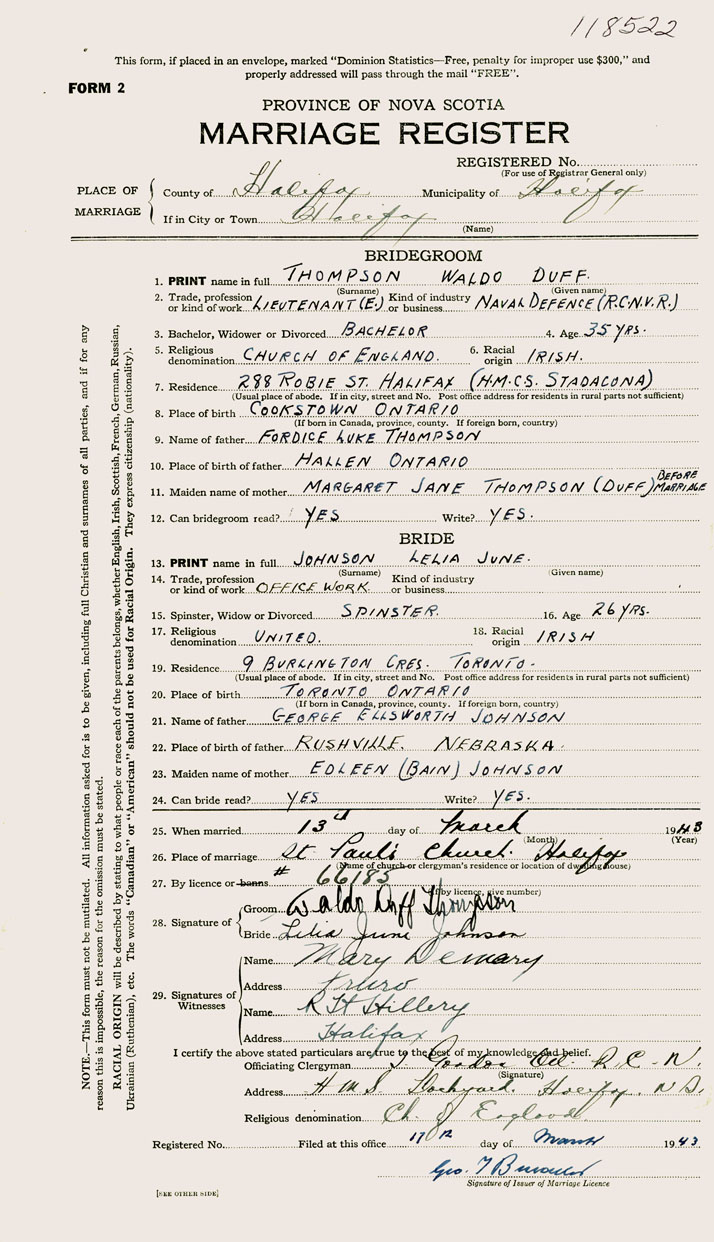 118522
This form, if placed in an envelope, marked "Dominion Statistics—Free, penalty for improper use $300," and
properly addressed will pass through the mail "FREE".
FORM 2
PROVINCE OF NOVA SCOTIA
MARRIAGE REGISTER
REGISTERED No.
(For use of Registrar General only)
PLACE OF MARRIAGE
County of Halifax Municipality of Halifax
If in City or Town Halifax
(Name)
BRIDEGROOM
1. PRINT name in full THOMPSON WALDO DUFF.
(Surname) (Given name)
2. Trade, profession or kind of work LIEUTENANT (E.) Kind of industry or business NAVAL DEFENCE (R.C.N.V.R.)
3. Bachelor, Widower or Divorced BACHELOR 4. Age 35 YRS.
5. Religious denomination CHURCH OF ENGLAND. 6. Racial origin IRISH.
7. Residence 288 ROBIE ST. HALIFAX (H.M.C.S. STADACONA)
(Usual place of abode. If in city, street and No. Post office address for residents in rural parts not sufficient)
8. Place of birth COOKSTOWN ONTARIO
(If born in Canada, province, county. If foreign born, country)
9. Name of father FORDICE LUKE THOMPSON
10. Place of birth of father HALLEN ONTARIO
11. Maiden name of mother MARGARET JANE THOMPSON (DUFF) BEFORE MARRIAGE
12. Can bridegroom read? YES Write? YES.
BRIDE
13. PRINT name in full JOHNSON LELIA JUNE.
(Surname) (Given name)
14. Trade, profession or kind of work OFFICE WORK. Kind of industry or business
15. Spinster, Widow or Divorced SPINSTER. 16. Age 26 YRS.
17. Religious denomination UNITED. 18. Racial origin IRISH
19. Residence 9 BURLINGTON CRES. TORONTO.
(Usual place of abode. If in city, street and No. Post office address for residents in rural parts not sufficient)
20. Place of birth TORONTO ONTARIO
(If born in Canada, province, county. If foreign born, country)
21. Name of father GEORGE ELLSWORTH JOHNSON
22. Place of birth of father RUSHVILLE. NEBRASKA.
23. Maiden name of mother EDLEEN (BAIN) JOHNSON
24. Can bride read? YES Write? YES.
25. When married 13th day of March 1943
(Month) (Year)
26. Place of marriage St Paul's Church Halifax
(Name of church or clergyman's residence or location of dwelling house)
27. By licence or banns # 66185
(If by licence, give number)
28. Signature of
Groom Waldo Duff Thompson
Bride Lelia June Johnson
29. Signatures of Witnesses
Name Mary Demary
Address Truro
Name R St Hillery
Address Halifax
I certify the above stated particulars are true to the best of my knowledge and belief.
Officiating Clergyman R.C.N.
(Signature)
Address HMS Dockyard. Halifax. N.S.
Religious denomination Ch. of England
Registered No. Filed at this office 17th day of March 1943
Geo.
Signature of Issuer of Marriage Licence
[SEE OTHER SIDE]
NOTE.—This form must not be mutilated. All information asked for is to be given, including full Christian and surnames of all parties, and if for any
reason this is impossible, the reason for the omission must be stated.
RACIAL ORIGIN will be described by stating to what people or race each of the parents belongs, whether English, Irish, Scottish, French, German, Russian,
Ukrainian (Ruthenian), etc. The words "Canadian" or "American" should not be used for Racial Origin. They express citizenship (nationality).